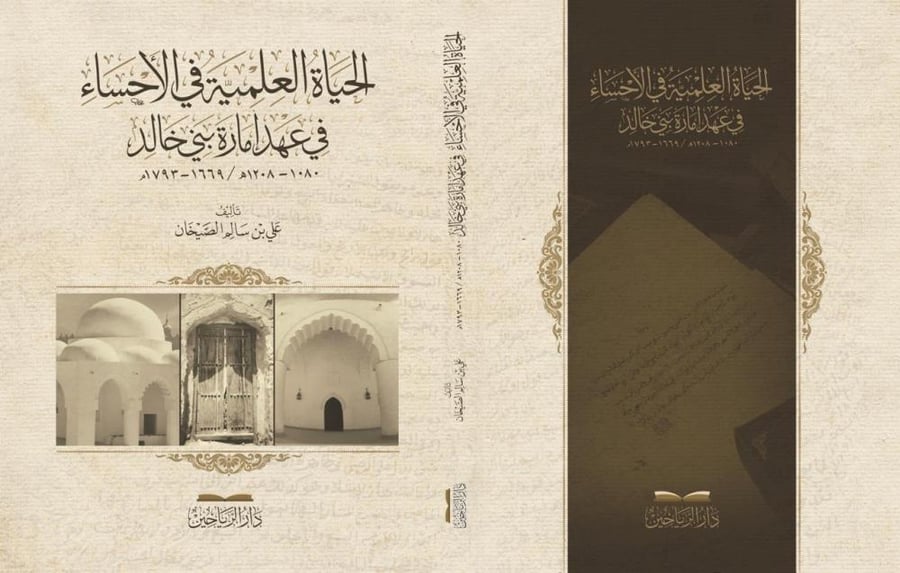 الحياة العلمية في الأحساء
في عهد إمارة بني خالد
١٠٨٠ - ١٢٠٨هـ / ١٦٦٩ - ١٧٩٣م
تأليف
علي بن سالم الصيخان
دار الرياحين
الحياة العلمية في الأحساء في عهد إمارة بني خالد ١٠٨٠ - ١٢٠٨هـ / ١٦٦٩ - ١٧٩٣م
تأليف
علي بن سالم الصيخان
دار الرياحين
الحياة العلمية في الأحساء
في عهد إمارة بني خالد
١٠٨٠ - ١٢٠٨هـ / ١٦٦٩ - ١٧٩٣م
دار الرياحين